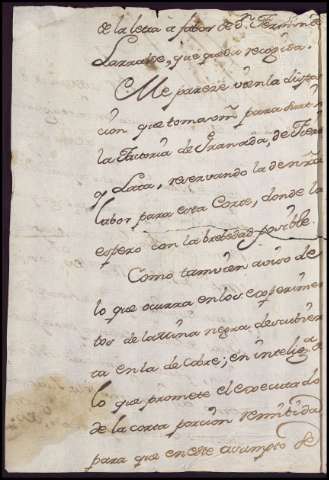 de la letra à favor de Dn. Fermin de
Larralde, que queda recogida.
Me parece vien la dispo
cion que toma vm para surtir
la Factoria de Granada, de Fie
y Lata, reservando la de nra
labor para esta Corte, donde la
espero con la brebedad posible.
Como tamvien aviso de
lo que ocurra en los experimen
tos de la Mina negra descubier
ta en la de Cobre; en inteliga. de
lo que promete el executado
de la corta porcion remitida
para que en este asumpto de